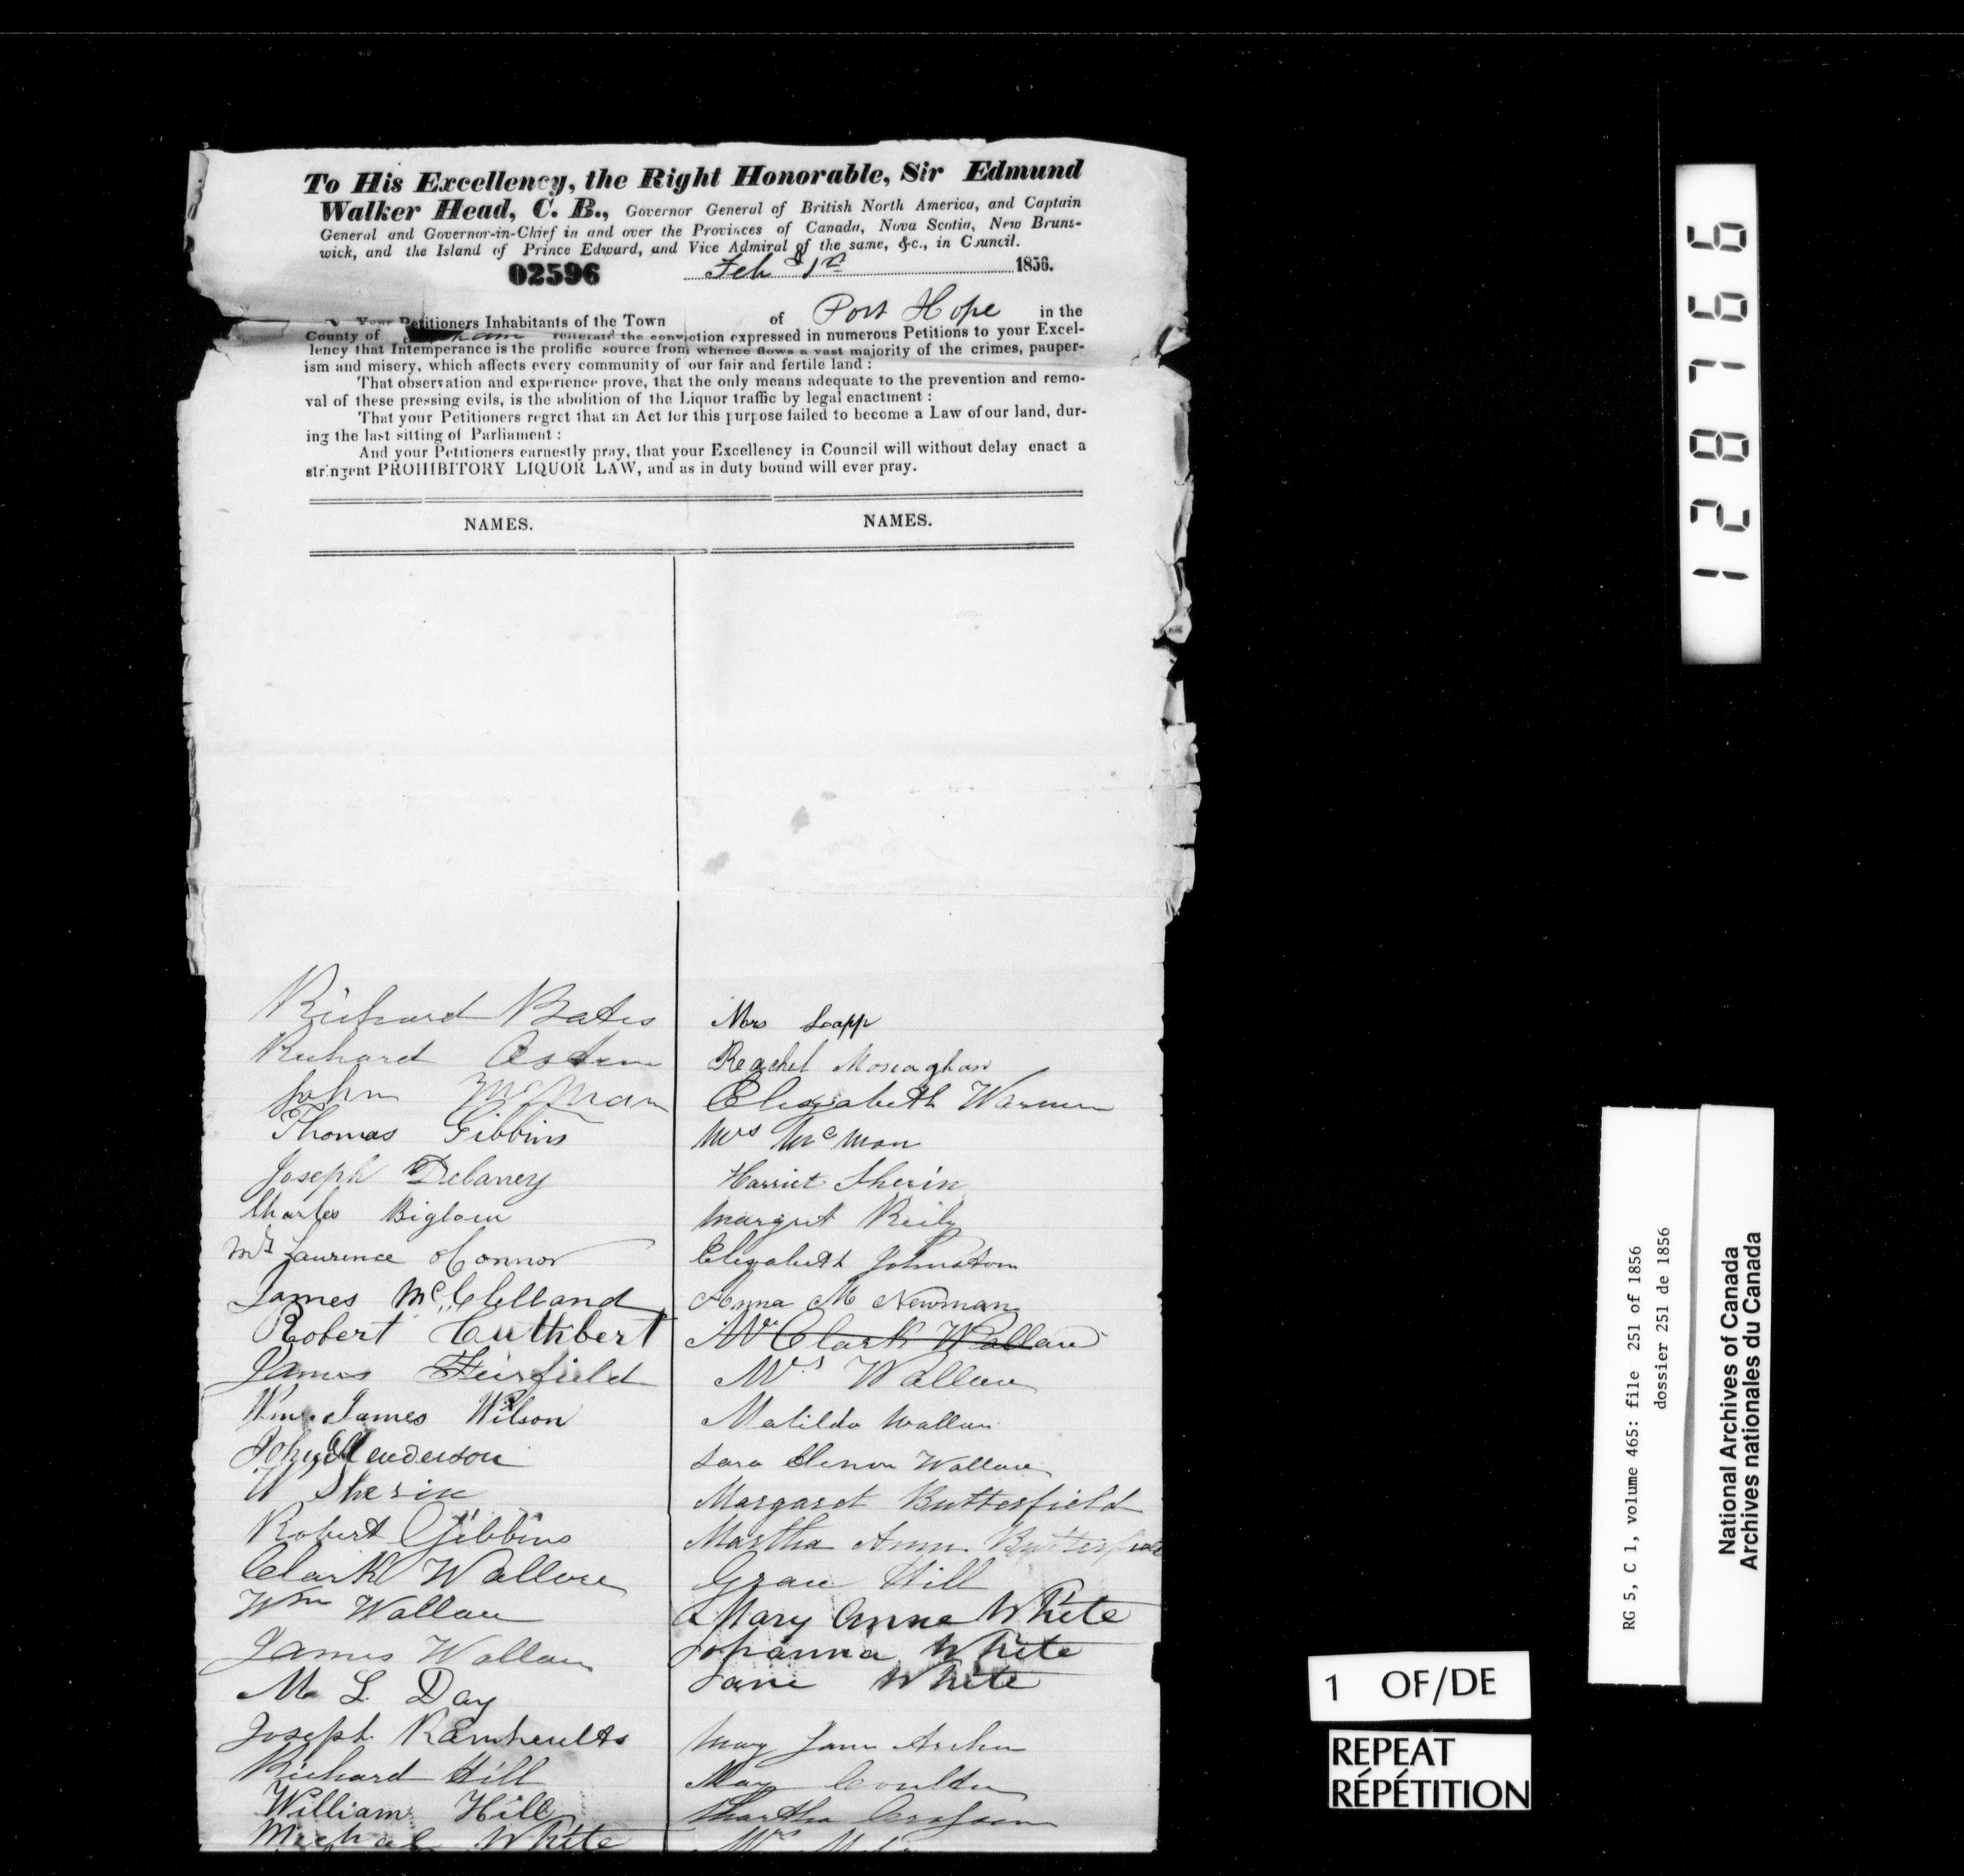 To His Excellency, the Right Honorable, Sir Edmund
Walker Head, C. B., Governor General of British North America, and Captain
General and Governor-in-Chief in and over the Provinces of Canada, Nova Scotia, New Bruns-
wick, and the Island of Prince Edward, and Vice Admiral of the same, &c., in Council.
02596 Feb 1st 1856.
Your Petitioners Inhabitants of the Town of Port Hope in the
County of reiterate the conviction expressed in numerous Petitions to your Excel-
lency that Intemperance is the prolific source from whence flows a vast majority of the crimes, pauper-
ism and misery, which affects every community of our fair and fertile land :
That observation and experience prove, that the only means adequate to the prevention and remo-
val of these pressing evils, is the abolition of the Liquor traffic by legal enactment :
That your Petitioners regret that an Act for this purpose failed to become a Law of our land, dur-
ing the last sitting of Parliament :
And your Petitioners earnestly pray, that your Excellency in Council will without delay enact a
stringent PROHIBITORY LIQUOR LAW, and as in duty bound will ever pray.
NAMES.
Richard Bates
Richard
John McMan
Thomas Gibbins
Joseph Delaney
Charles Biglow
Laurence oConnor
James McClelland
Robert Cuthbert
James Fairfield
Wm James Wilson
John Henderson
W Sherin
Robert Gibbins
Clark Wallace
Wm Wallace
James Wallace
M L Day
Joseph
Richard Hill
William Hill
Michael White
NAMES.
Mrs Lapp
Reachel Monaghan
Elizabeth
Mrs McMan
Harriet Sherin
Margret Reily
Elizabeth Johnston
Anna M Newman
Clark Wallace
Mrs Wallace
Matilda Wallace
Sara Elenor Wallace
Margaret Butterfield
Martha Ann Butterfield
Grace Hill
Mary Anne White
Johanna White
Jane White
Mary Jane Archer
May Coulter
Martha
Mrs
128766
RG 5, C 1, volume 465: file 251 of 1856
dossier 251 de 1856
National Archives of Canada
Archives nationales du Canada
1 OF/DE
REPEAT
RÉPÉTITION